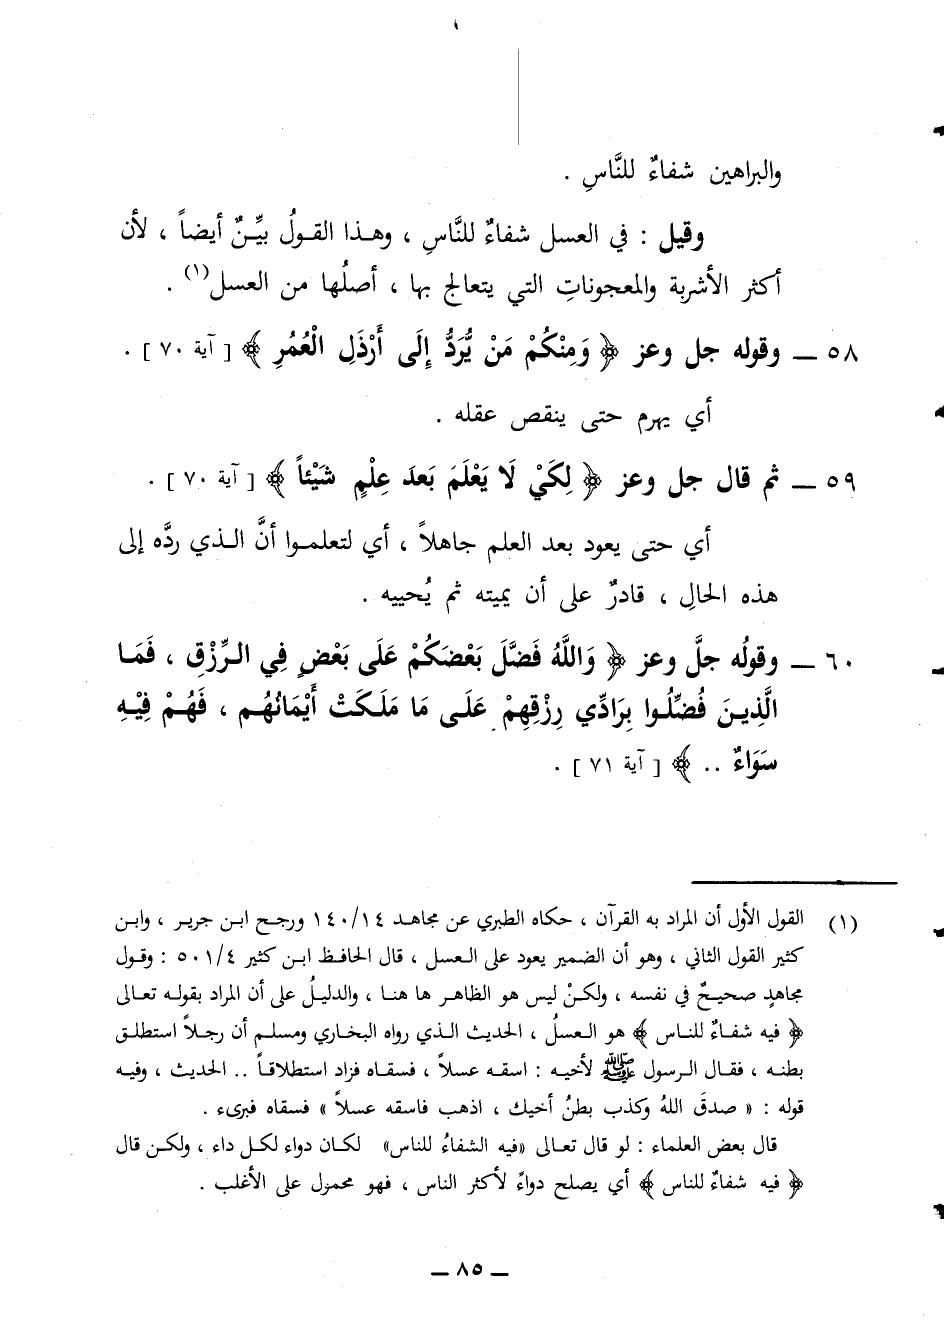 والبراهين شفاءٌ للنَّاسِ .
وقيل : في العسل شفاءٌ للنَّاسِ ، وهـذا القـولُ بيِّـنٌ أيضـاً ، لأن
أكثر الأشربة والمعجوناتِ التي يتعالج بها ، أصلُها من العسل(١) .
٥٨ ــ وقوله جل وعز ﴿ وَمِنْكُمْ مَنْ يُرَدُّ إِلَى أَرْذَلِ الْعُمُرِ ﴾ [ آية ٧٠ ] .
أي يهرم حتى ينقص عقله .
٥٩ ــ ثم قال جل وعز ﴿ لِكَيْ لَا يَعْلَمَ بَعدَ عِلْمٍ شَيْئاً ﴾ [ آية ٧٠ ] .
أي حتى يعود بعد العلم جاهلاً ، أي لتعلمـوا أنَّ الـذي ردَّه إلى
هذه الحالِ ، قادرٌ على أن يميته ثم يُحييه .
٦٠ ــ وقولُه جلَّ وعز ﴿ وَاللَّهُ فَضَّلَ بَعْضَكُمْ عَلَى بَعْضٍ فِي الـرِّزْقِ ، فَمَـا
الَّذِيـنَ فُضِّلُـوا بِرَادِّي رِزْقِهِمْ عَلَـى مَا مَلَكَتْ أَيْمَانُهُم ، فَهُمْ فِيْـهِ
سَوَاءٌ .. ﴾ [ آية ٧١ ] .
(١) القول الأول أن المراد به القرآن ، حكاه الطبري عن مجاهد ١٤٠/١٤ ورجح ابـن جريـر ، وابن
كثير القول الثاني ، وهو أن الضمير يعود على العسل ، قال الحافظ ابـن كثير ٥٠١/٤ : وقـول
مجاهدٍ صحيحٌ في نفسه ، ولكنْ ليس هو الظاهر ها هنا ، والدليلُ على أن المراد بقولـه تعـالى
﴿ فيه شفـاءٌ للناس ﴾ هو العـسلُ ، الحديث الـذي رواه البخـاري ومسلـم أن رجـلاً استطلـق
بطنـه ، فقـال الـرسول ﷺ لأخيـه : اسقـه عسـلاً ، فسقـاه فزاد استطلاقـاً .. الحديث ، وفيـه
قوله : « صدقَ اللهُ وكذب بطنُ أخيك ، اذهب فاسقه عسلاً » فسقاه فبرىء .
قال بعض العلماء : لو قال تعـالى «فيه الشفاءُ للناس» لكـان دواء لكـل داء ، ولكـن قال
﴿ فيه شفـاءٌ للناس ﴾ أي يصلح دواءً لأكثر الناس ، فهو محمول على الأغلب .
ــ ٨٥ ــ